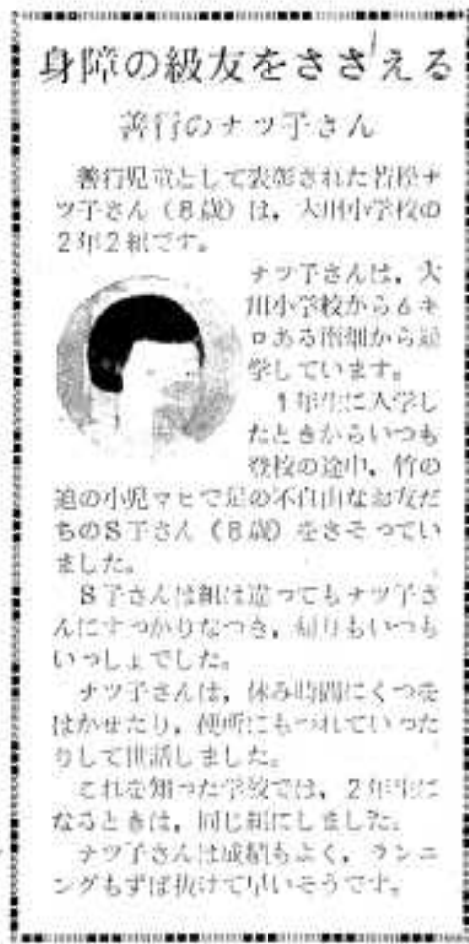 身障の級友をささえる
善行のナツ子さん
善行児童として表彰された若松ナ
ツ子さん（8歳）は，大川小学校の
2年2組です。
ナツ子さんは，大
川小学校から6キ
ロある南畑から通
学しています。
1年生に入学し
たときからいつも
登校の途中，竹の
迫の小児マヒで足の不自由なお友だ
ちのS子さん（8歳）をさそってい
ました。
S子さんは組は違ってもナツ子さ
んにすっかりなつき，帰りもいつも
いっしょでした。
ナツ子さんは，休み時間にくつを
はかせたり，便所にもつれていった
りして世話しました。
これを知った学校では，2年生に
なるときは，同じ組にしました。
ナツ子さんは成績もよく，ランニ
ングもずば抜けて早いそうです。